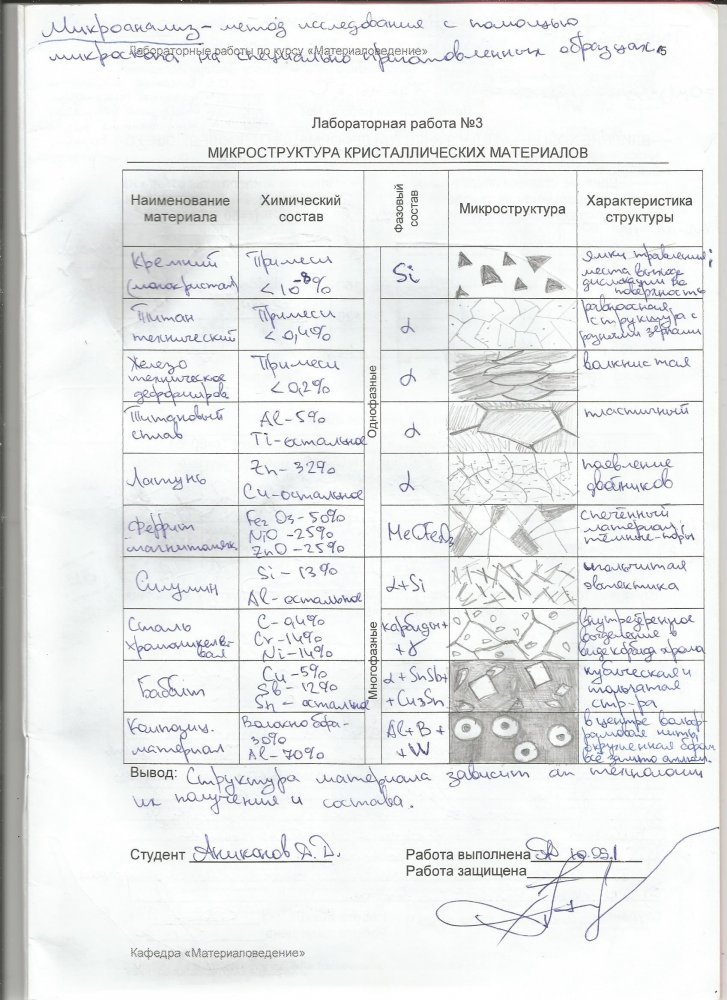 Микроанализ - метод исследования с помощью
Лабораторные работы по курсу «Материаловедение»
микроскопа на специально приготовленных образцах.
15
Лабораторная работа №3
МИКРОСТРУКТУРА КРИСТАЛЛИЧЕСКИХ МАТЕРИАЛОВ
Наименование материала
Химический состав
Фазовый состав
Микроструктура
Характеристика структуры
Однофазные
Кремний
(монокристал)
Примеси
< 10⁻⁸%
Si
ямки травления;
места выхода
дислокации на
поверхность
Титан
технический
Примеси
< 0,4%
α
равноосная
структура с
разными зернами
Железо
техническое
деформиров
Примеси
< 0,2%
α
волкнистая
Титановый
сплав
Al-5%
Ti-остальное
α
пластичный
Латунь
Zn-32%
Cu-остальное
α
появление
двойников
Феррит
магнитомяг
Fe₂O₃-50%
NiO-25%
ZnO-25%
MeOFe₂O₃
спеченный
материал
темные-поры
Многофазные
Силумин
Si-13%
Al-остальное
α+Si
игольчатая
эвтектика
Сталь
хромоникелев-
вая
C-0,4%
Cr-14%
Ni-14%
карбиды+
+γ
внутризеренное
выделение в
виде карбид хрома
Баббит
Cu-5%
Sb-12%
Sn-остальное
α+SnSb+
+Cu3Sn
кубическая и
игольчатая
стр-ра
Композиц.
материал
Волокно бора-
30%
Al-70%
Al+B+
+W
в центре вольф-
рамовая нить
окруженная бором
все залито алюм.
Вывод: Структура материала зависит от технологии
их получения и состава.
Студент Аниканов А.Д.
Работа выполнена
Работа защищена
Кафедра «Материаловедение»